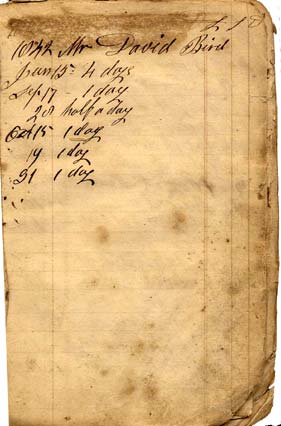 £ S D
1832 Mr David Bird
Juan 15: 4 days
Sep 17 - 1 day
28 half a day
Oct 15 1 day
19 1 day
31 1 day